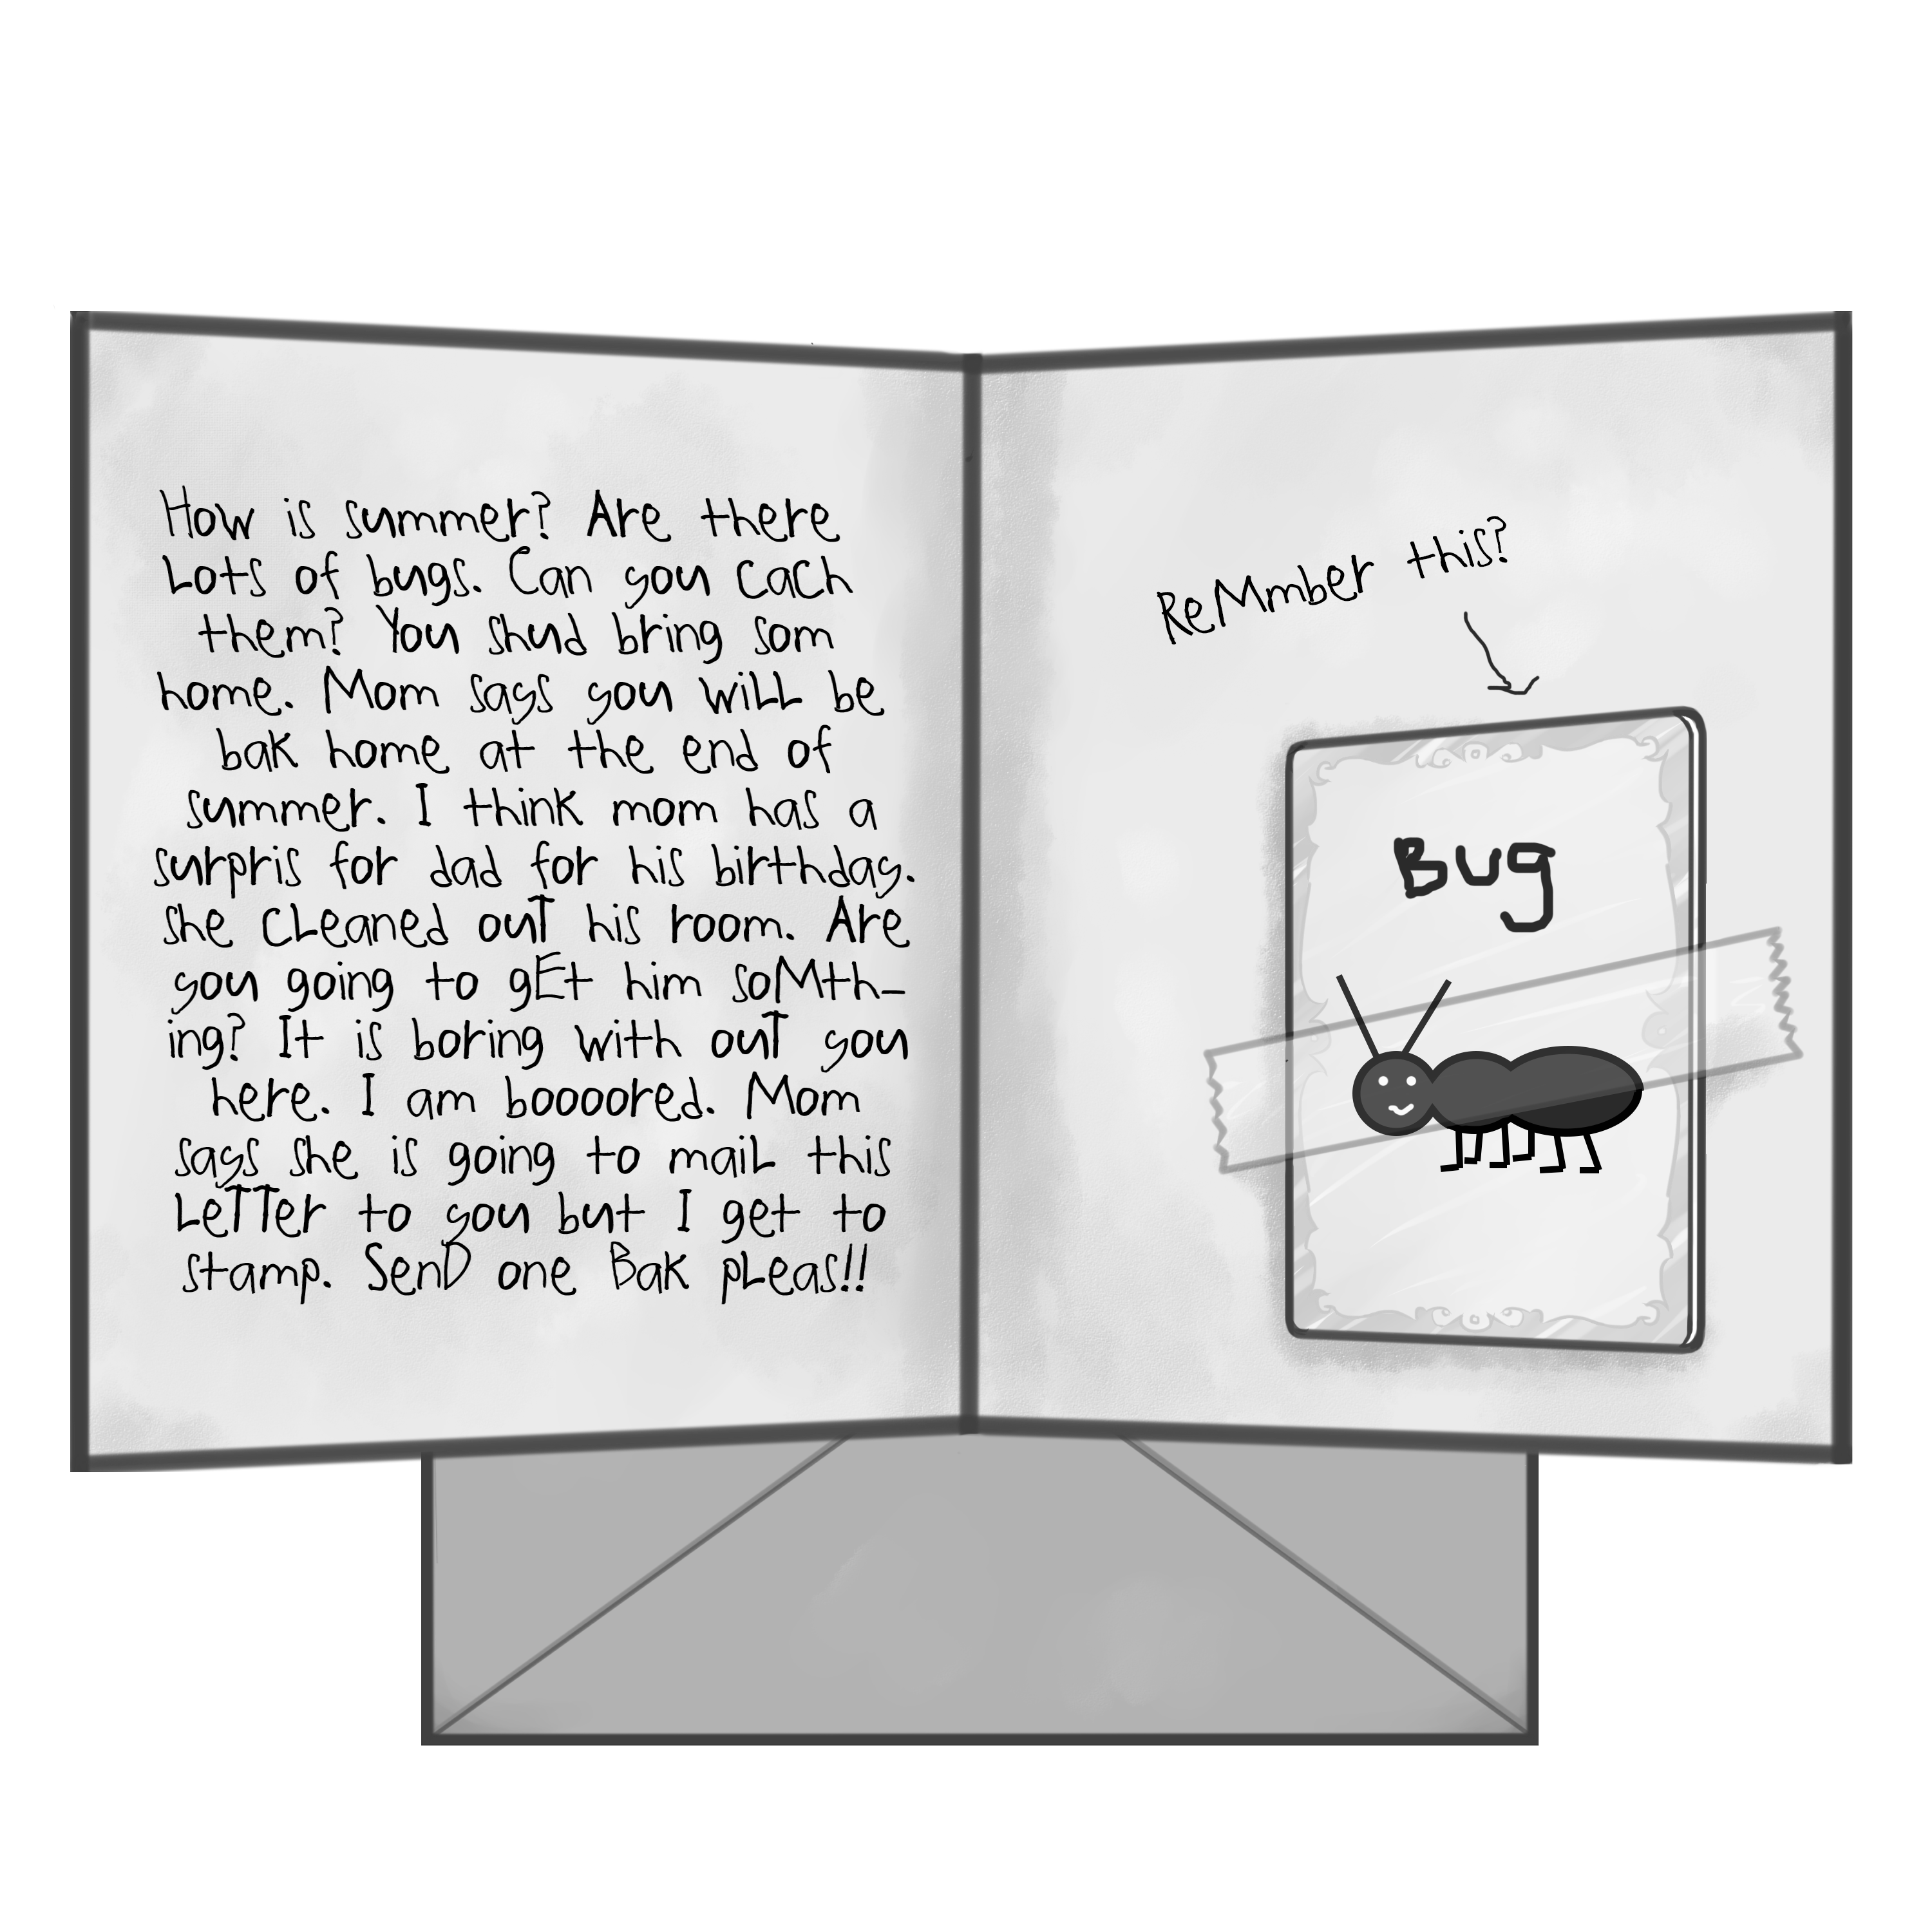 How is summer? Are there
Lots of bugs. Can you cach
them? You shud bring som
home. Mom says you wiLL be
bak home at the end of
summer. I think mom has a
surpris for dad for his birthday.
she cLeaned ouT his room. Are
you going to gEt him soMth-
ing? It is boring with ouT you
here. I am boooored. Mom
says she is going to maiL this
LeTTer to you but I get to
stamp. SenD one Bak pLeas!!
ReMmber this?
Bug